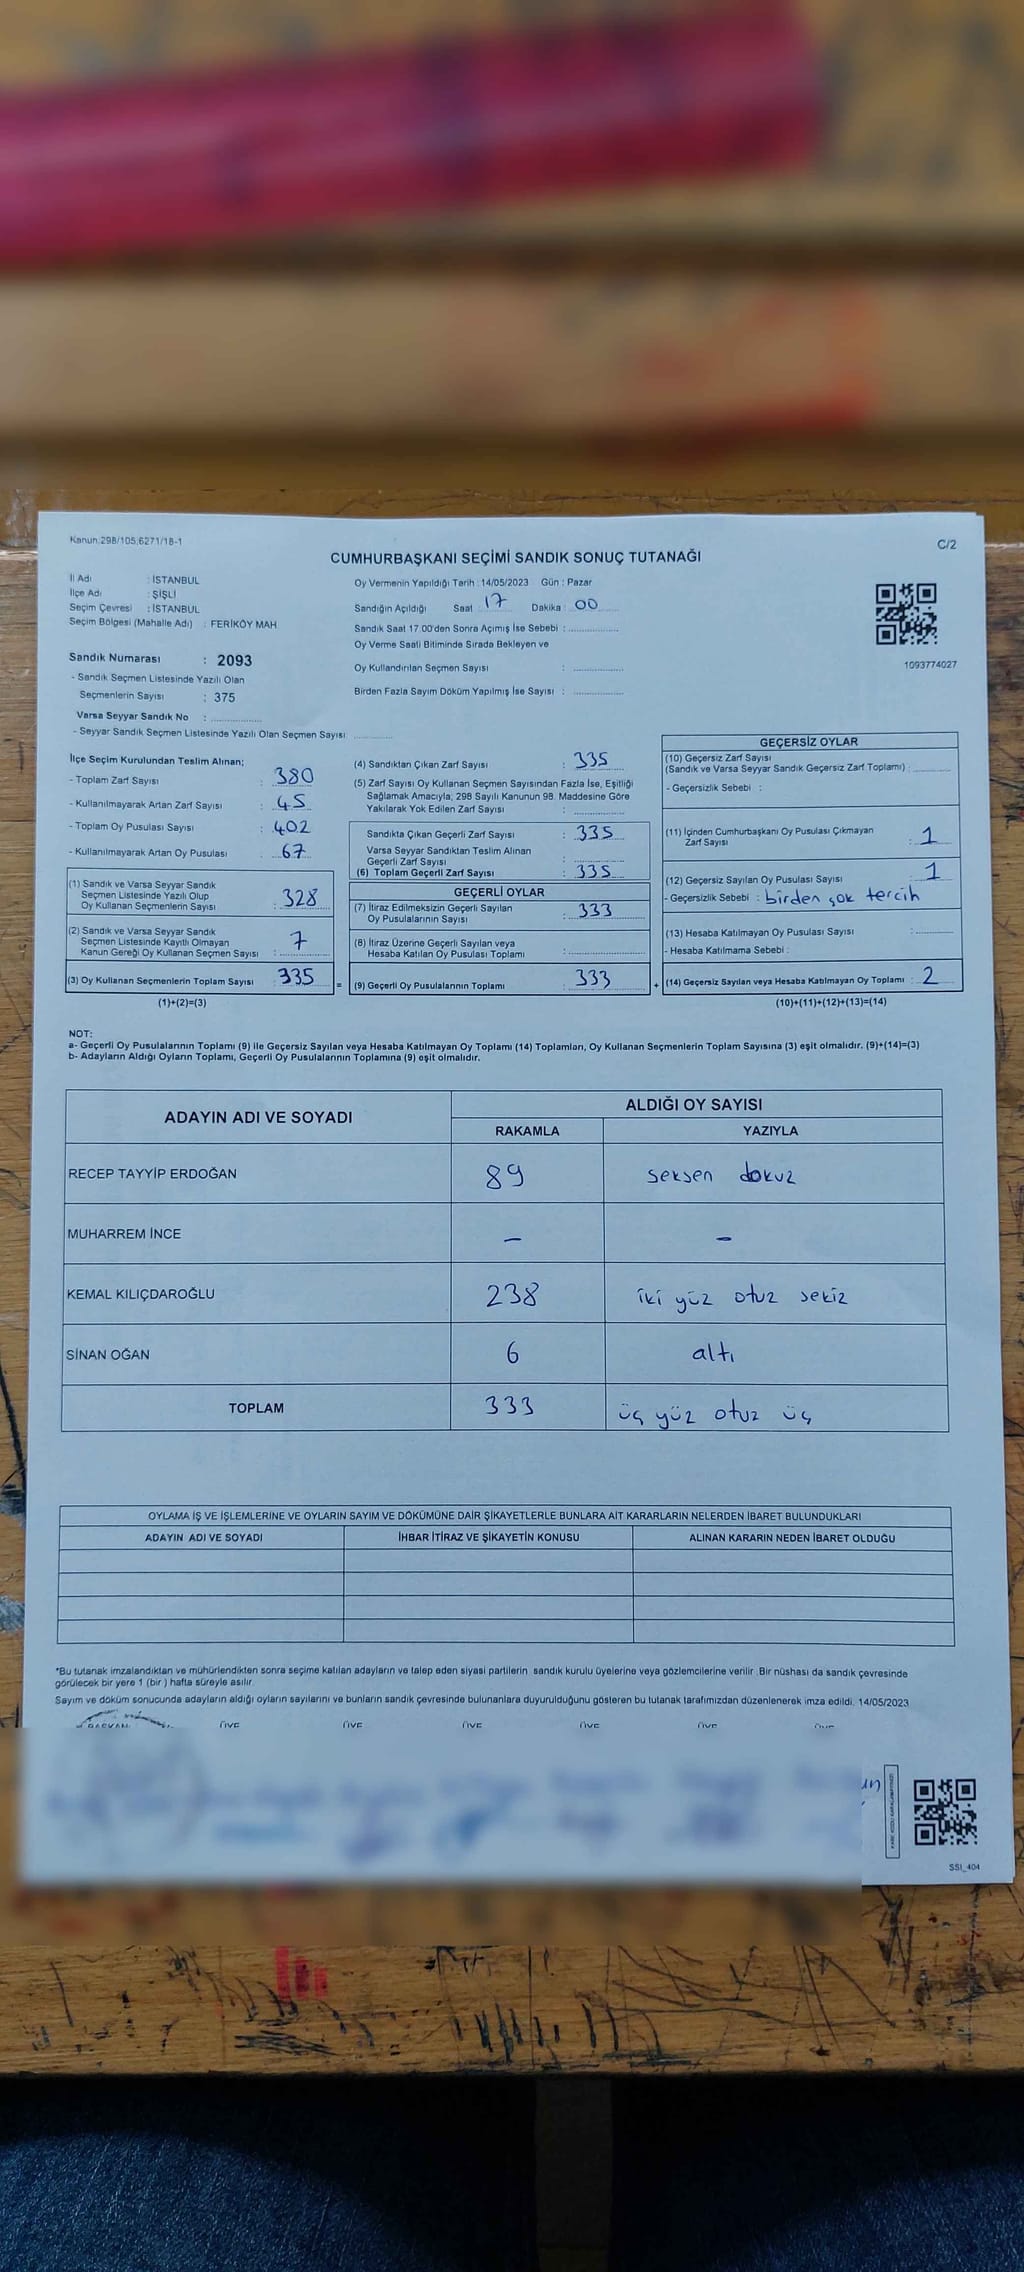 Kanun:298/105;6271/18-1
C/2
CUMHURBAŞKANI SEÇİMİ SANDIK SONUÇ TUTANAĞI
İl Adı : İSTANBUL
İlçe Adı : ŞİŞLİ
Seçim Çevresi : İSTANBUL
Seçim Bölgesi (Mahalle Adı) : FERİKÖY MAH
Sandık Numarası : 2093
- Sandık Seçmen Listesinde Yazılı Olan
Seçmenlerin Sayısı : 375
Varsa Seyyar Sandık No :
- Seyyar Sandık Seçmen Listesinde Yazılı Olan Seçmen Sayısı:
Oy Vermenin Yapıldığı Tarih : 14/05/2023 Gün : Pazar
Sandığın Açıldığı Saat 17 Dakika : 00
Sandık Saat 17.00'den Sonra Açımış İse Sebebi :
Oy Verme Saati Bitiminde Sırada Bekleyen ve
Oy Kullandırılan Seçmen Sayısı :
Birden Fazla Sayım Döküm Yapılmış İse Sayısı :
1093774027
İlçe Seçim Kurulundan Teslim Alınan;
- Toplam Zarf Sayısı : 380
- Kullanılmayarak Artan Zarf Sayısı : 45
- Toplam Oy Pusulası Sayısı : 402
- Kullanılmayarak Artan Oy Pusulası : 67
(1) Sandık ve Varsa Seyyar Sandık
Seçmen Listesinde Yazılı Olup
Oy Kullanan Seçmenlerin Sayısı : 328
(2) Sandık ve Varsa Seyyar Sandık
Seçmen Listesinde Kayıtlı Olmayan
Kanun Gereği Oy Kullanan Seçmen Sayısı : 7
(3) Oy Kullanan Seçmenlerin Toplam Sayısı : 335
(1)+(2)=(3)
=
(4) Sandıktan Çıkan Zarf Sayısı : 335
(5) Zarf Sayısı Oy Kullanan Seçmen Sayısından Fazla İse, Eşitliği
Sağlamak Amacıyla; 298 Sayılı Kanunun 98. Maddesine Göre
Yakılarak Yok Edilen Zarf Sayısı :
Sandıkta Çıkan Geçerli Zarf Sayısı : 335
Varsa Seyyar Sandıktan Teslim Alınan
Geçerli Zarf Sayısı :
(6) Toplam Geçerli Zarf Sayısı : 335
GEÇERLİ OYLAR
(7) İtiraz Edilmeksizin Geçerli Sayılan
Oy Pusulalarının Sayısı : 333
(8) İtiraz Üzerine Geçerli Sayılan veya
Hesaba Katılan Oy Pusulası Toplamı :
(9) Geçerli Oy Pusulalarının Toplamı : 333
+
GEÇERSİZ OYLAR
(10) Geçersiz Zarf Sayısı
(Sandık ve Varsa Seyyar Sandık Geçersiz Zarf Toplamı) :
- Geçersizlik Sebebi :
(11) İçinden Cumhurbaşkanı Oy Pusulası Çıkmayan
Zarf Sayısı : 1
(12) Geçersiz Sayılan Oy Pusulası Sayısı : 1
- Geçersizlik Sebebi : birden çok tercih
(13) Hesaba Katılmayan Oy Pusulası Sayısı :
- Hesaba Katılmama Sebebi :
(14) Geçersiz Sayılan veya Hesaba Katılmayan Oy Toplamı : 2
(10)+(11)+(12)+(13)=(14)
NOT:
a- Geçerli Oy Pusulalarının Toplamı (9) ile Geçersiz Sayılan veya Hesaba Katılmayan Oy Toplamı (14) Toplamları, Oy Kullanan Seçmenlerin Toplam Sayısına (3) eşit olmalıdır. (9)+(14)=(3)
b- Adayların Aldığı Oyların Toplamı, Geçerli Oy Pusulalarının Toplamına (9) eşit olmalıdır.
ADAYIN ADI VE SOYADI ALDIĞI OY SAYISI
RAKAMLA YAZIYLA
RECEP TAYYİP ERDOĞAN 89 seksen dokuz
MUHARREM İNCE - -
KEMAL KILIÇDAROĞLU 238 iki yüz otuz sekiz
SİNAN OĞAN 6 altı
TOPLAM 333 üç yüz otuz üç
OYLAMA İŞ VE İŞLEMLERİNE VE OYLARIN SAYIM VE DÖKÜMÜNE DAİR ŞİKAYETLERLE BUNLARA AİT KARARLARIN NELERDEN İBARET BULUNDUKLARI
ADAYIN ADI VE SOYADI İHBAR İTİRAZ VE ŞİKAYETİN KONUSU ALINAN KARARIN NEDEN İBARET OLDUĞU
*Bu tutanak imzalandıktan ve mühürlendikten sonra seçime katılan adayların ve talep eden siyasi partilerin sandık kurulu üyelerine veya gözlemcilerine verilir. Bir nüshası da sandık çevresinde
görülecek bir yere 1 (bir ) hafta süreyle asılır.
Sayım ve döküm sonucunda adayların aldığı oyların sayılarını ve bunların sandık çevresinde bulunanlara duyurulduğunu gösteren bu tutanak tarafımızdan düzenlenerek imza edildi. 14/05/2023
BAŞKAN ÜYE ÜYE ÜYE ÜYE ÜYE ÜYE
SSI_404